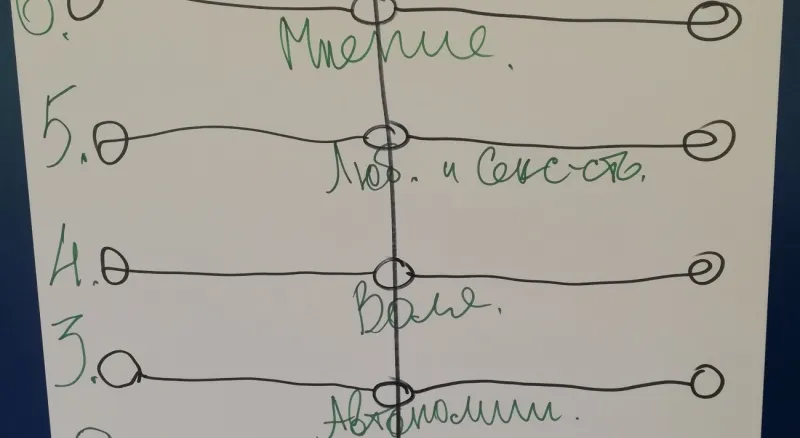 6.
Мнение.
5.
Люб. и Секс-сть.
4.
Воля.
3.
Автономии.